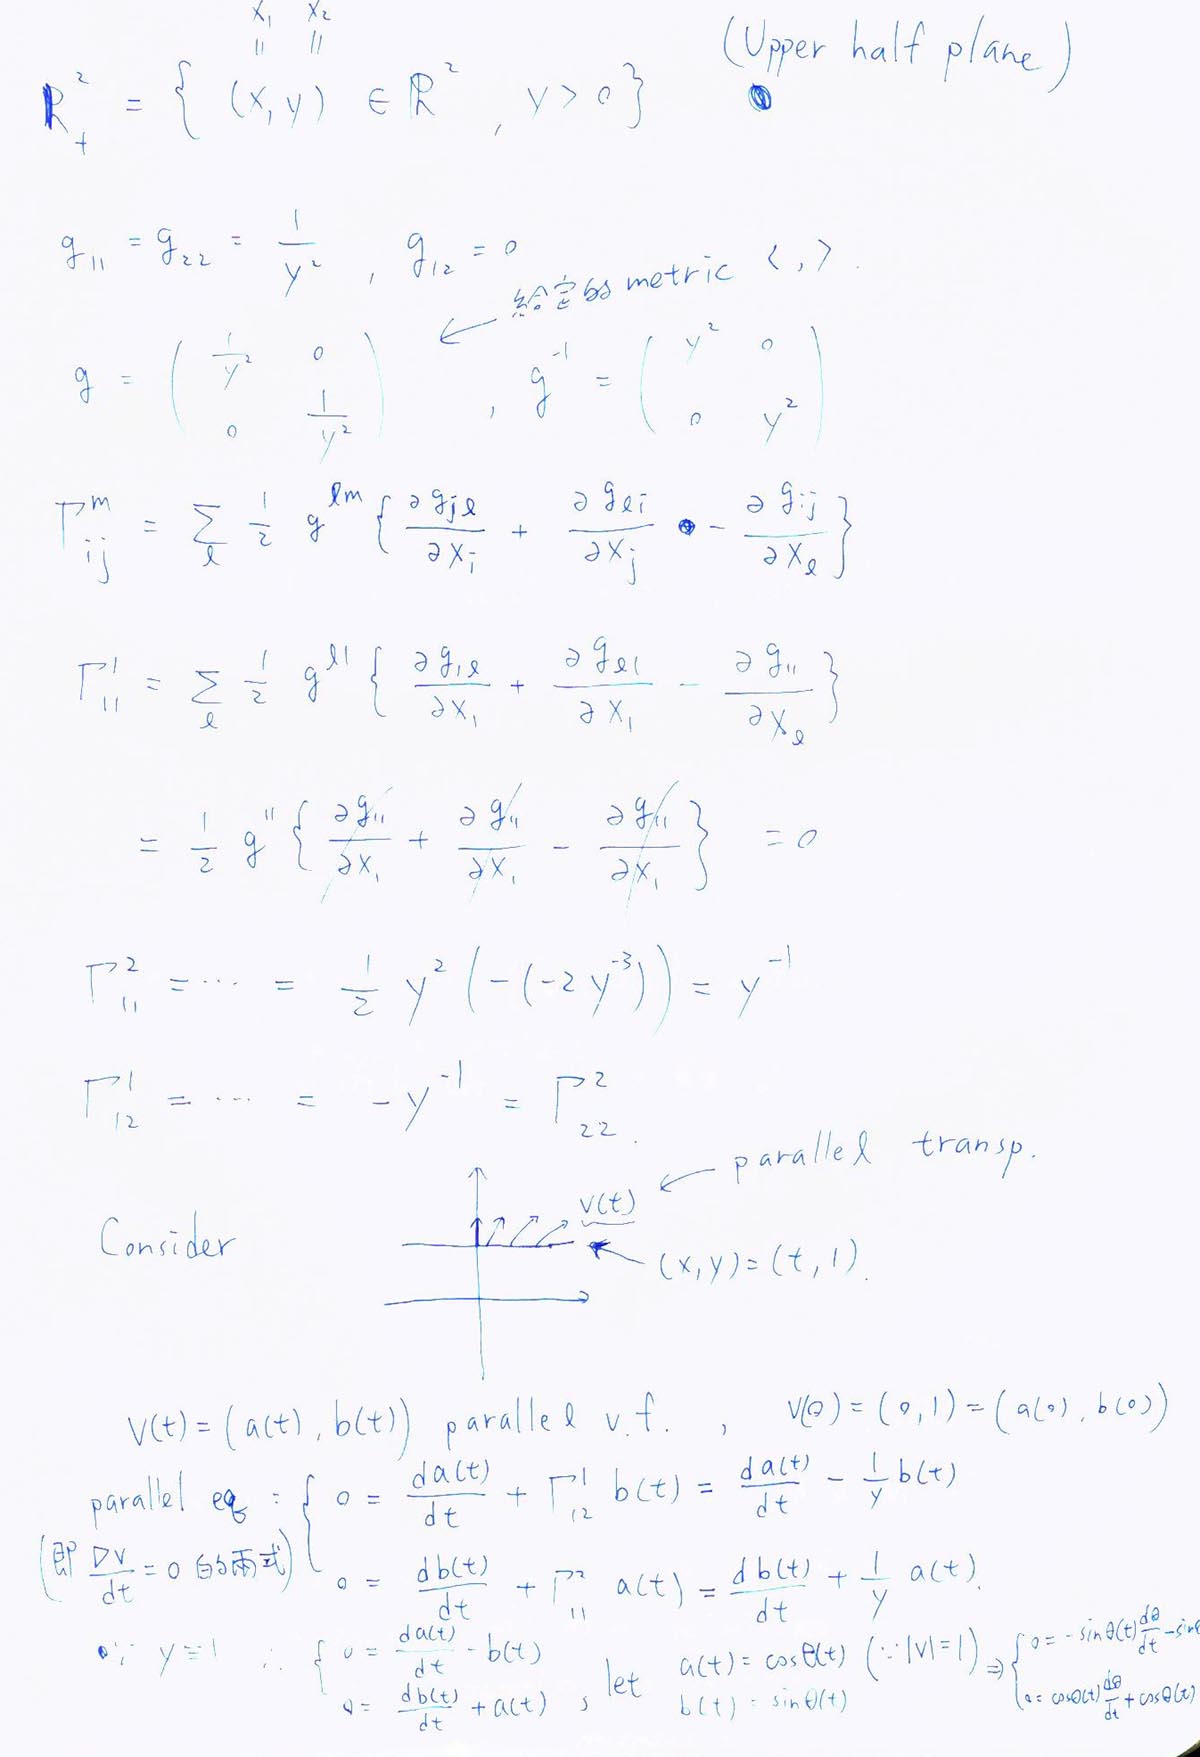 x₁ x₂
|| ||
ℝ²₊ = { (x, y) ∈ ℝ² , y > 0 } (Upper half plane)
g₁₁ = g₂₂ = 1/y² , g₁₂ = 0
← 給定的 metric < , > .
g = ( 1/y² 0 ; 0 1/y² ) , g⁻¹ = ( y² 0 ; 0 y² )
Γᵢⱼᵐ = Σ_l 1/2 g^{lm} { ∂g_{jl}/∂x_i + ∂g_{li}/∂x_j - ∂g_{ij}/∂x_l }
Γ₁₁¹ = Σ_l 1/2 g^{l1} { ∂g_{1l}/∂x₁ + ∂g_{l1}/∂x₁ - ∂g₁₁/∂x_l }
= 1/2 g¹¹ { ∂g₁₁/∂x₁ + ∂g₁₁/∂x₁ - ∂g₁₁/∂x₁ } = 0
Γ₁₁² = ... = 1/2 y² ( -(-2 y⁻³) ) = y⁻¹
Γ₁₂¹ = ... = -y⁻¹ = Γ₂₂² .
← parallel transp.
v(t)
Consider
(x, y) = (t, 1).
v(t) = (a(t), b(t)) parallel v.f. , v(0) = (0, 1) = (a(0), b(0))
parallel eq : { 0 = da(t)/dt + Γ₁₂¹ b(t) = da(t)/dt - 1/y b(t)
(即 DV/dt = 0 的兩式) 0 = db(t)/dt + Γ₁₁² a(t) = db(t)/dt + 1/y a(t).
∵ y = 1 ∴ { 0 = da(t)/dt - b(t)
0 = db(t)/dt + a(t) , let a(t) = cosθ(t) (∵ |v| = 1)
b(t) = sinθ(t)
⇒ { 0 = -sinθ(t) dθ/dt - sinθ
0 = cosθ(t) dθ/dt + cosθ(t)